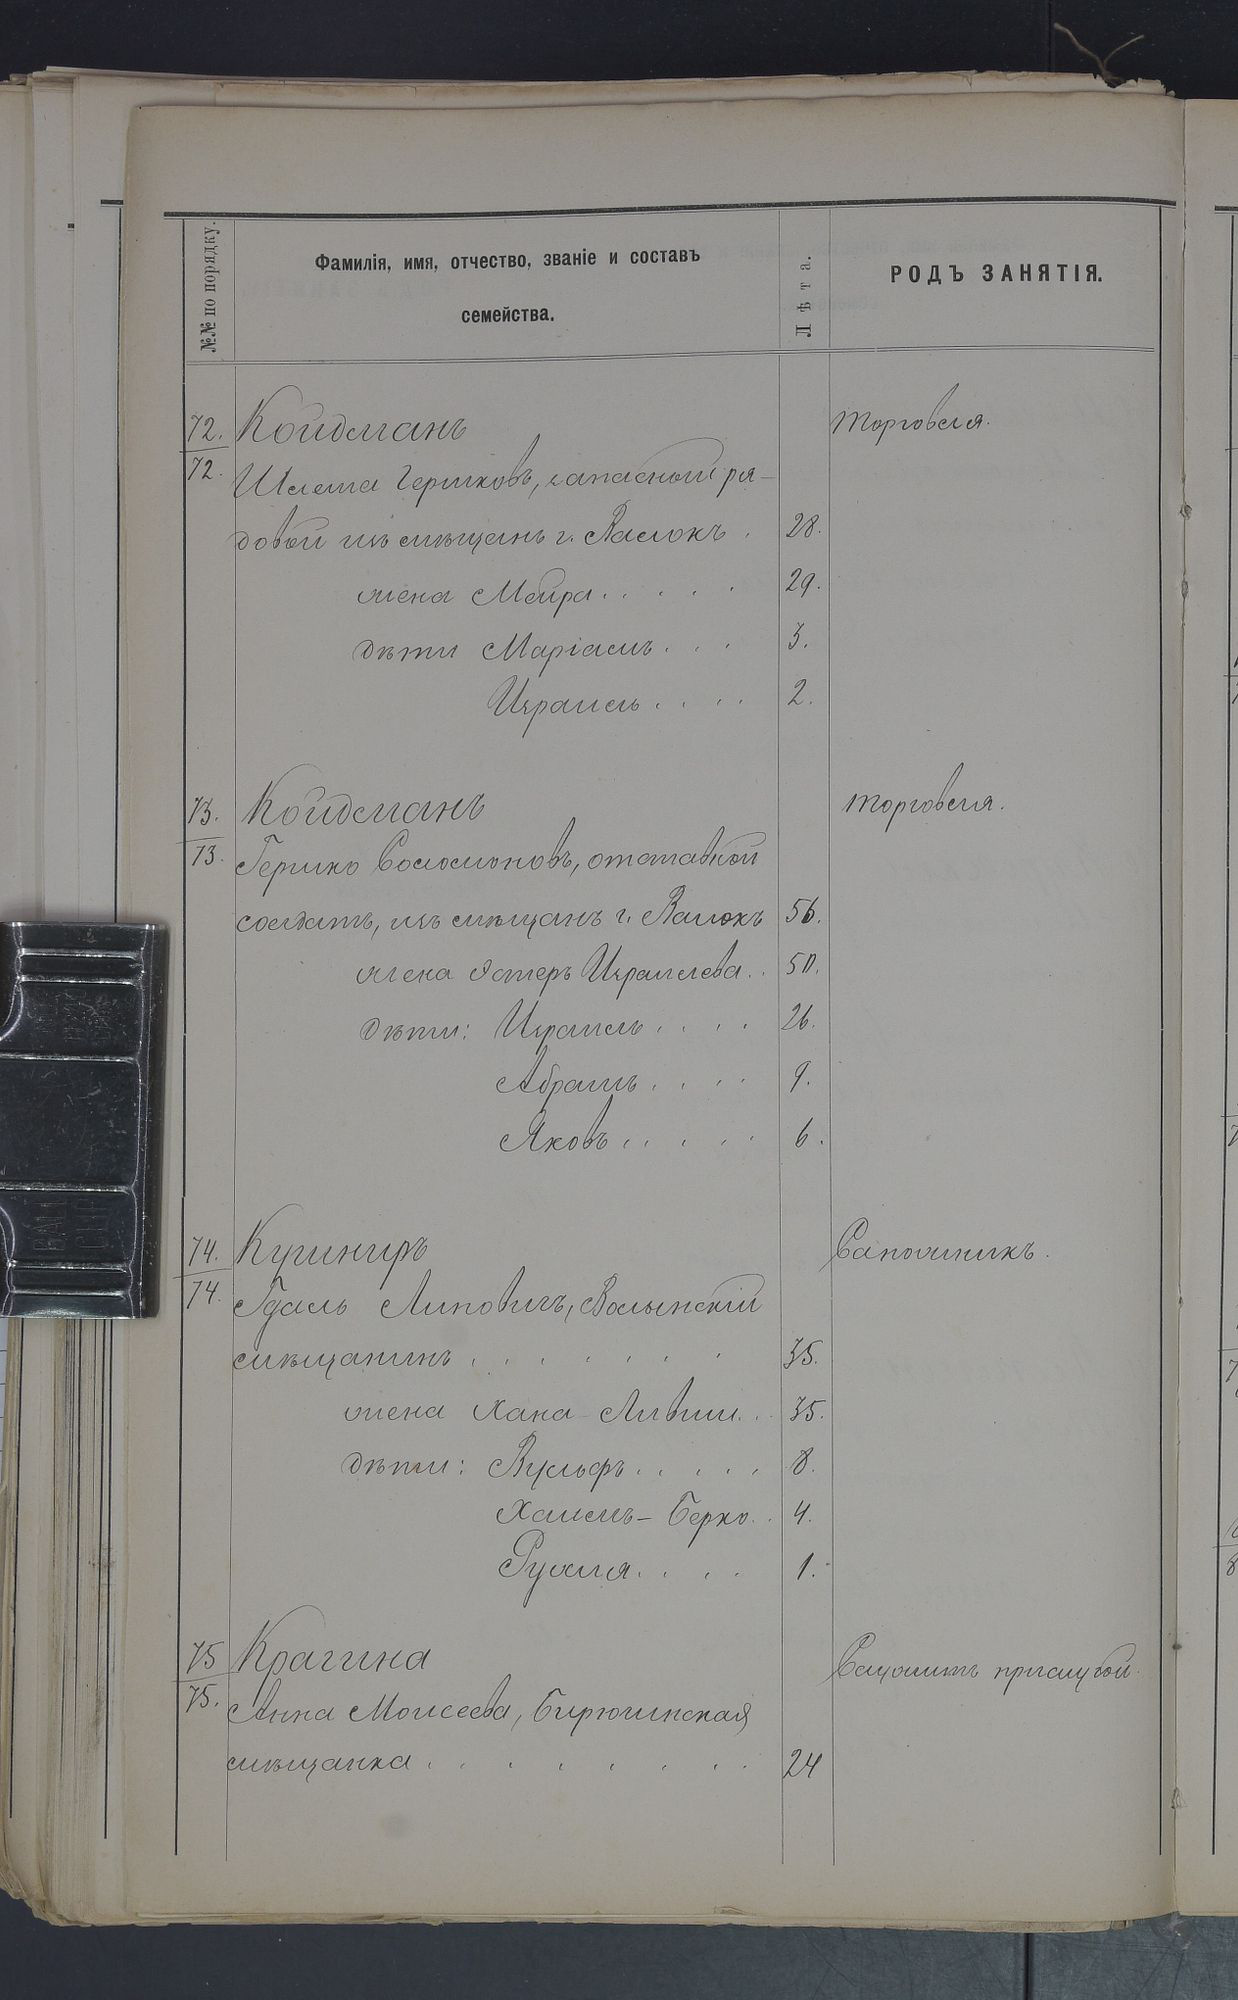 №№ по порядку.
Фамилія, имя, отчество, званіе и составъ
семейства.
Лѣта.
РОДЪ ЗАНЯТІЯ.
72. Койдманъ Торговля.
72. Шлема Гершковъ, запасный ря-
довый изъ мѣщанъ г. Валокъ . 28.
жена Мейра . . . . . 29.
дѣти Маріамъ . . . 3.
Израиль . . . . 2.
73. Койдманъ Торговля.
73. Гершко Соломоновъ, отставной
солдатъ, изъ мѣщанъ г. Валокъ 56.
жена Эстеръ Израилева . . 50.
дѣти: Израиль . . . . 26.
Абрамъ . . . . 9.
Яковъ . . . . . 6.
74. Кушниръ Сапожникъ.
74. Гдаль Липовичъ, Волынскій
мѣщанинъ . . . . . . . 35.
жена Хана - Ливши . . 35.
дѣти: Вульфъ . . . . . 8.
Хаимъ - Берко . . 4.
Рухля . . . . 1.
75 Крагина Служитъ прислугой.
75. Анна Моисеева, Бирючинская
мѣщанка . . . . . . . . 24